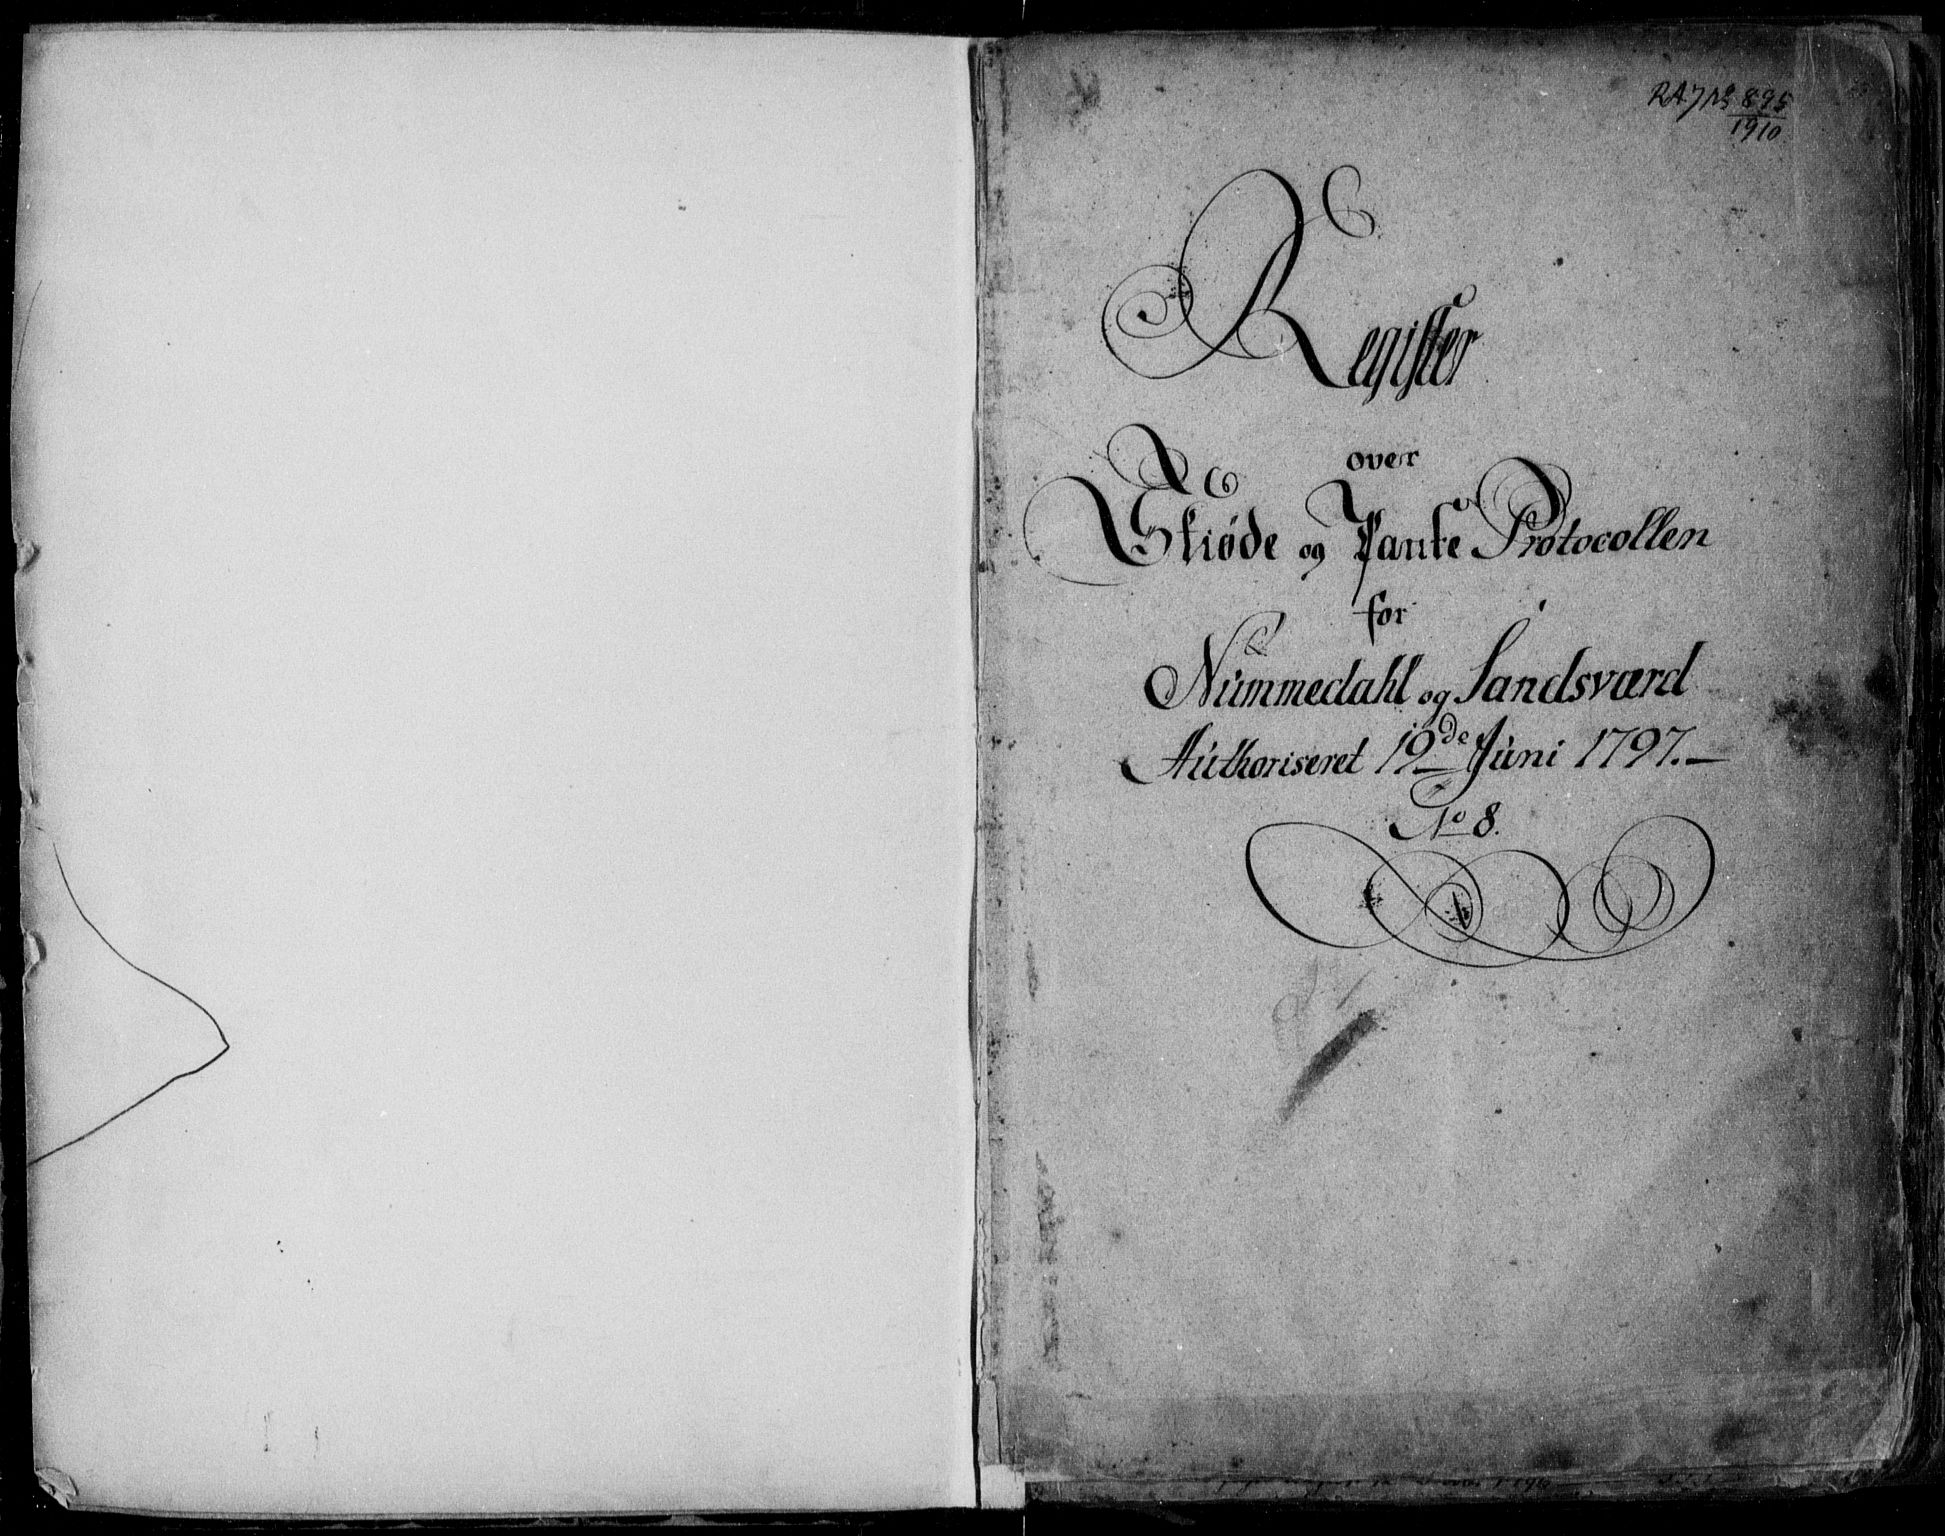 RA. J№ 895
1910
Register
over
Skiøde og Pante Protocollen
for
Nummedahl og Sandsværd
Authoriseret 19de Juni 1797.—
No 8.